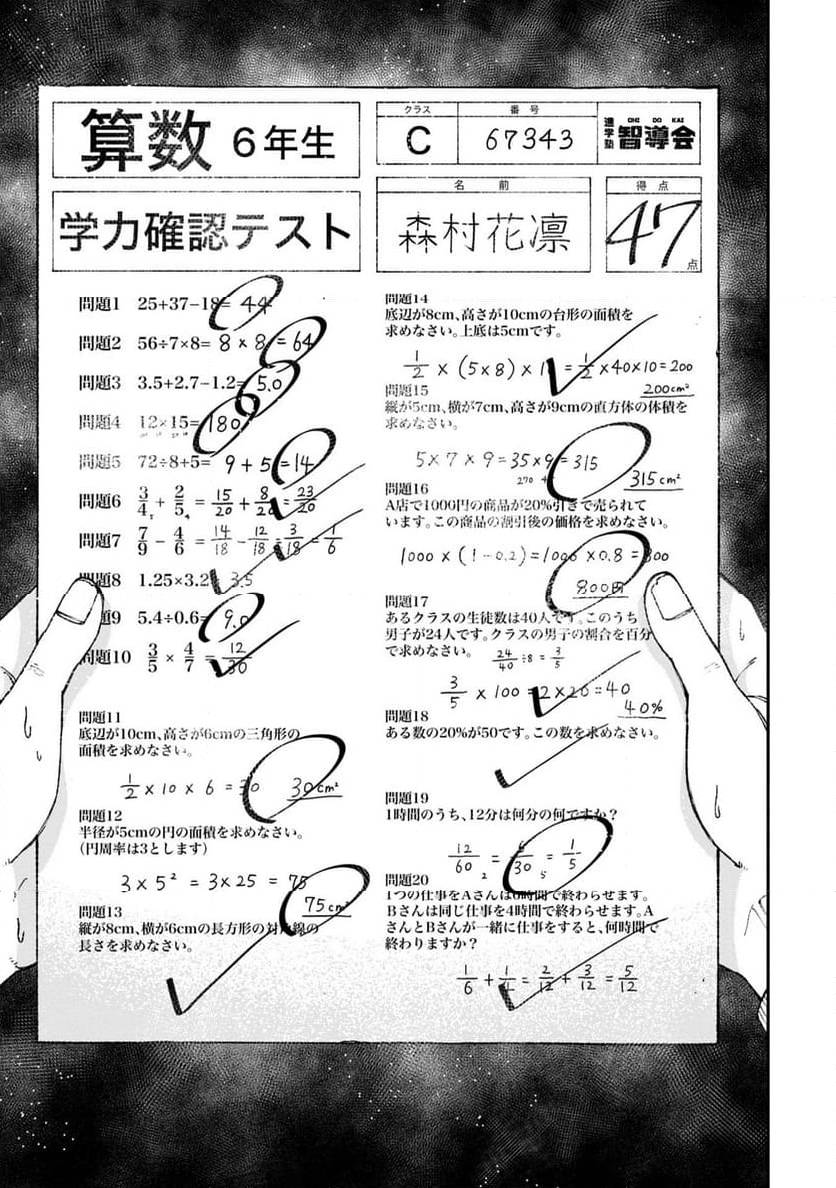 算数 6年生
クラス
C
番号
67343
進学塾
CHI DO KAI
智導会
学力確認テスト
名前
森村花凛
得点
47
点
問題1 25+37-18= 44
問題2 56÷7×8= 8×8=64
問題3 3.5+2.7-1.2= 5.0
問題4 12×15= 180
問題5 72÷8+5= 9+5=14
問題6 3/4 + 2/5 = 15/20 + 8/20 = 23/20
問題7 7/9 - 4/6 = 14/18 - 12/18 = 3/18 = 1/6
問題8 1.25×3.2= 3.5
問題9 5.4÷0.6= 9.0
問題10 3/5 × 4/7 = 12/30
問題11
底辺が10cm、高さが6cmの三角形の
面積を求めなさい。
1/2 × 10 × 6 = 30
30cm²
問題12
半径が5cmの円の面積を求めなさい。
(円周率は3とします)
3×5² = 3×25 = 75
75cm²
問題13
縦が8cm、横が6cmの長方形の対角線の
長さを求めなさい。
問題14
底辺が8cm、高さが10cmの台形の面積を
求めなさい。上底は5cmです。
1/2 × (5×8) × 10 = 1/2 ×40×10=200
200cm²
問題15
縦が5cm、横が7cm、高さが9cmの直方体の体積を
求めなさい。
5×7×9=35×9=315
270+
315cm²
問題16
A店で1000円の商品が20%引きで売られて
います。この商品の割引後の価格を求めなさい。
1000×(1-0.2)=1000×0.8=800
800円
問題17
あるクラスの生徒数は40人です。このうち
男子が24人です。クラスの男子の割合を百分
で求めなさい。
24/40 ÷8 = 3/5
3/5 × 100 = 2×20=40
40%
問題18
ある数の20%が50です。この数を求めなさい。
問題19
1時間のうち、12分は何分の何ですか?
12/60 = 6/30 = 1/5
問題20
1つの仕事をAさんは6時間で終わらせます。
Bさんは同じ仕事を4時間で終わらせます。A
さんとBさんが一緒に仕事をすると、何時間で
終わりますか?
1/6 + 1/4 = 2/12 + 3/12 = 5/12